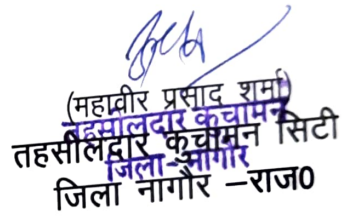 (महावीर प्रसाद शर्मा)
तहसीलदार कुचामन
तहसीलदार कुचामन सिटी
जिला-नागौर
जिला नागौर –राज0